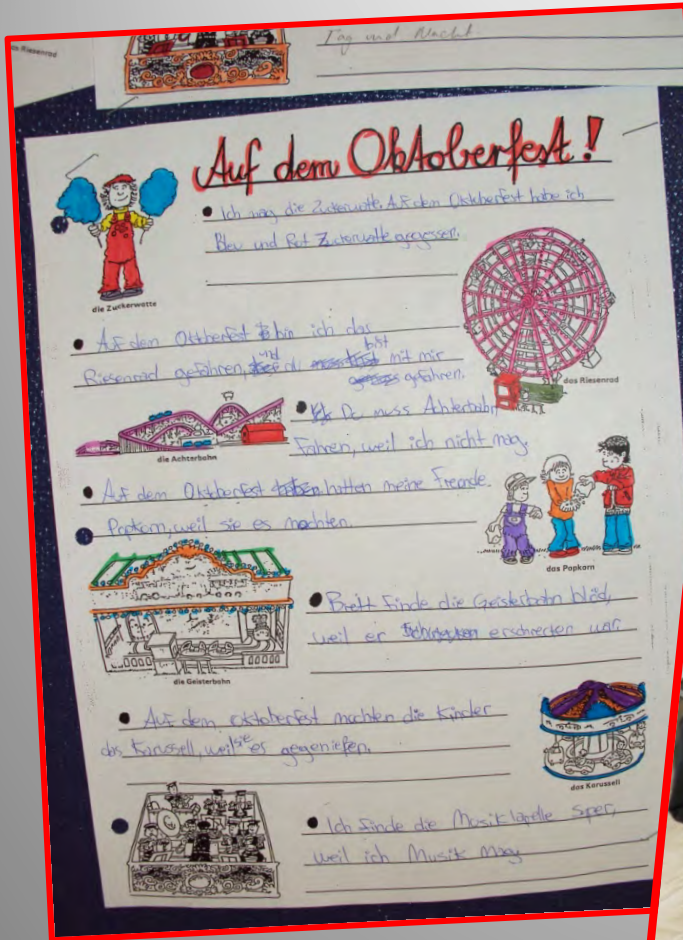 das Riesenrad
Tag und Nacht
Auf dem Oktoberfest!
• Ich mag die Zuckerwatte. Auf dem Oktoberfest habe ich
Blau und Rot Zuckerwatte gegessen.
die Zuckerwatte
• Auf dem Oktoberfest bin ich das
Riesenrad gefahren, und du bist mit mir
gefahren.
das Riesenrad
• Du muss Achterbahn
fahren, weil ich nicht mag.
die Achterbahn
• Auf dem Oktoberfest hatten meine Freunde
Popkorn, weil sie es mochten.
das Popkorn
• Brett finde die Geisterbahn blöd,
weil er erschrecken war
die Geisterbahn
• Auf dem oktoberfest mochten die Kinder
das Karussell, weil sie es gegenießen.
das Karussell
• Ich finde die Musikkapelle
weil ich Musik mag